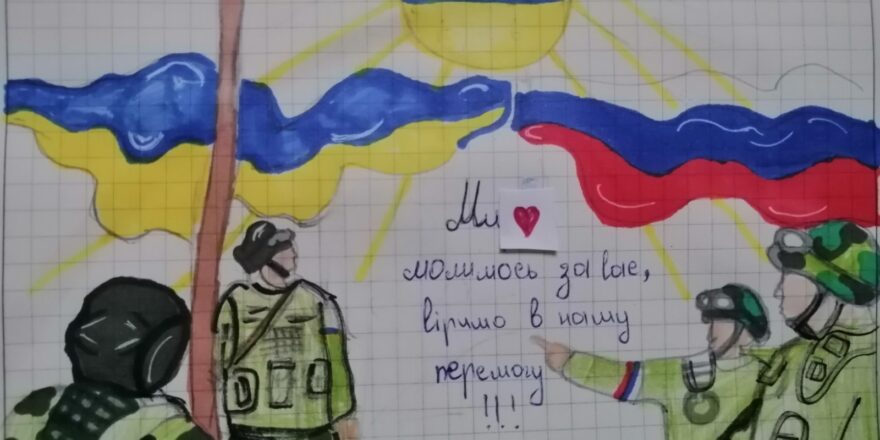 Ми
молимось за вас,
віримо в нашу
перемогу
!!!